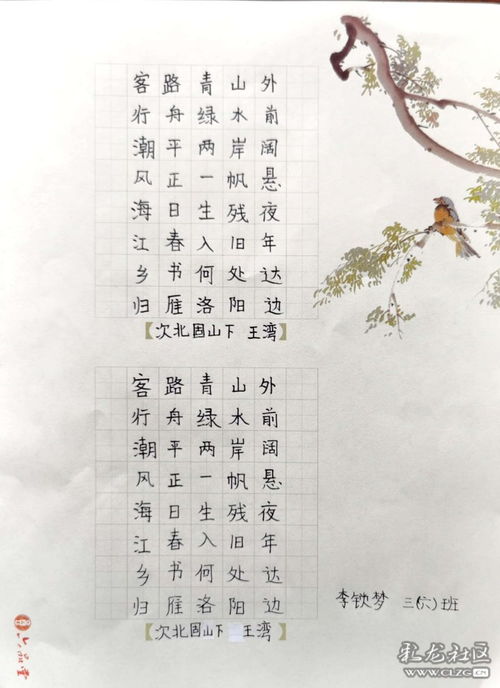 客路青山外
行舟绿水前
潮平两岸阔
风正一帆悬
海日生残夜
江春入旧年
乡书何处达
归雁洛阳边
【次北固山下 王湾】
客路青山外
行舟绿水前
潮平两岸阔
风正一帆悬
海日生残夜
江春入旧年
乡书何处达
归雁洛阳边
【次北固山下 王湾】
李铁梦 三(六)班
龙社区
WWW.CLZG.CN